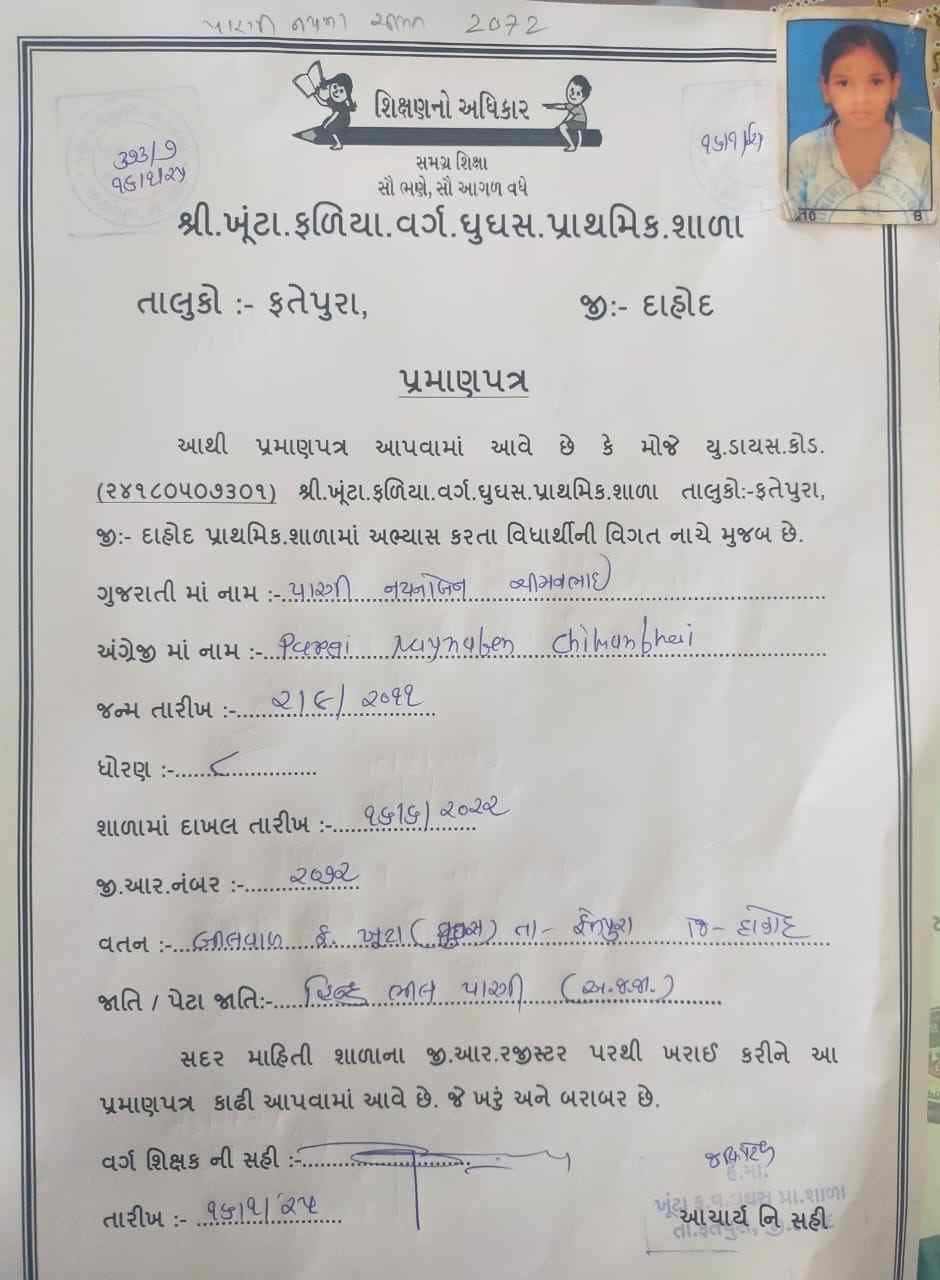 પારગી નયના ચીમન 2072
શિક્ષણનો અધિકાર
૩૭૩/૭
૧૬/૧/૨૫
સમગ્ર શિક્ષા
સૌ ભણે, સૌ આગળ વધે
શ્રી.ખૂંટા.ફળિયા.વર્ગ.ઘુઘસ.પ્રાથમિક.શાળા
તાલુકો :- ફતેપુરા, જી:- દાહોદ
પ્રમાણપત્ર
આથી પ્રમાણપત્ર આપવામાં આવે છે કે મોજે યુ.ડાયસ.કોડ.
(૨૪૧૮૦૫૦૭૩૦૧) શ્રી.ખૂંટા.ફળિયા.વર્ગ.ઘુઘસ.પ્રાથમિક.શાળા તાલુકો:-ફતેપુરા,
જી:- દાહોદ પ્રાથમિક.શાળામાં અભ્યાસ કરતા વિધાર્થીની વિગત નાચે મુજબ છે.
ગુજરાતી માં નામ :- પારગી નયનાબેન ચીમનભાઈ
અંગ્રેજી માં નામ :- Pargi Naynaben Chimanbhai
જન્મ તારીખ :- ૨/૯/૨૦૧૧
ધોરણ :- ૮
શાળામાં દાખલ તારીખ :- ૧૬/૬/૨૦૨૨
જી.આર.નંબર :- ૨૦૭૨
વતન :- ખૂટા (ઘુઘસ) તા- ફતેપુરા જિ- દાહોદ
જાતિ / પેટા જાતિ:- હિન્દુ ભીલ પારગી (અ.જ.જા.)
સદર માહિતી શાળાના જી.આર.રજીસ્ટર પરથી ખરાઈ કરીને આ
પ્રમાણપત્ર કાઢી આપવામાં આવે છે. જે ખરું અને બરાબર છે.
વર્ગ શિક્ષક ની સહી :-
તારીખ :- ૧૬/૧/૨૫
આચાર્ય નિ સહી